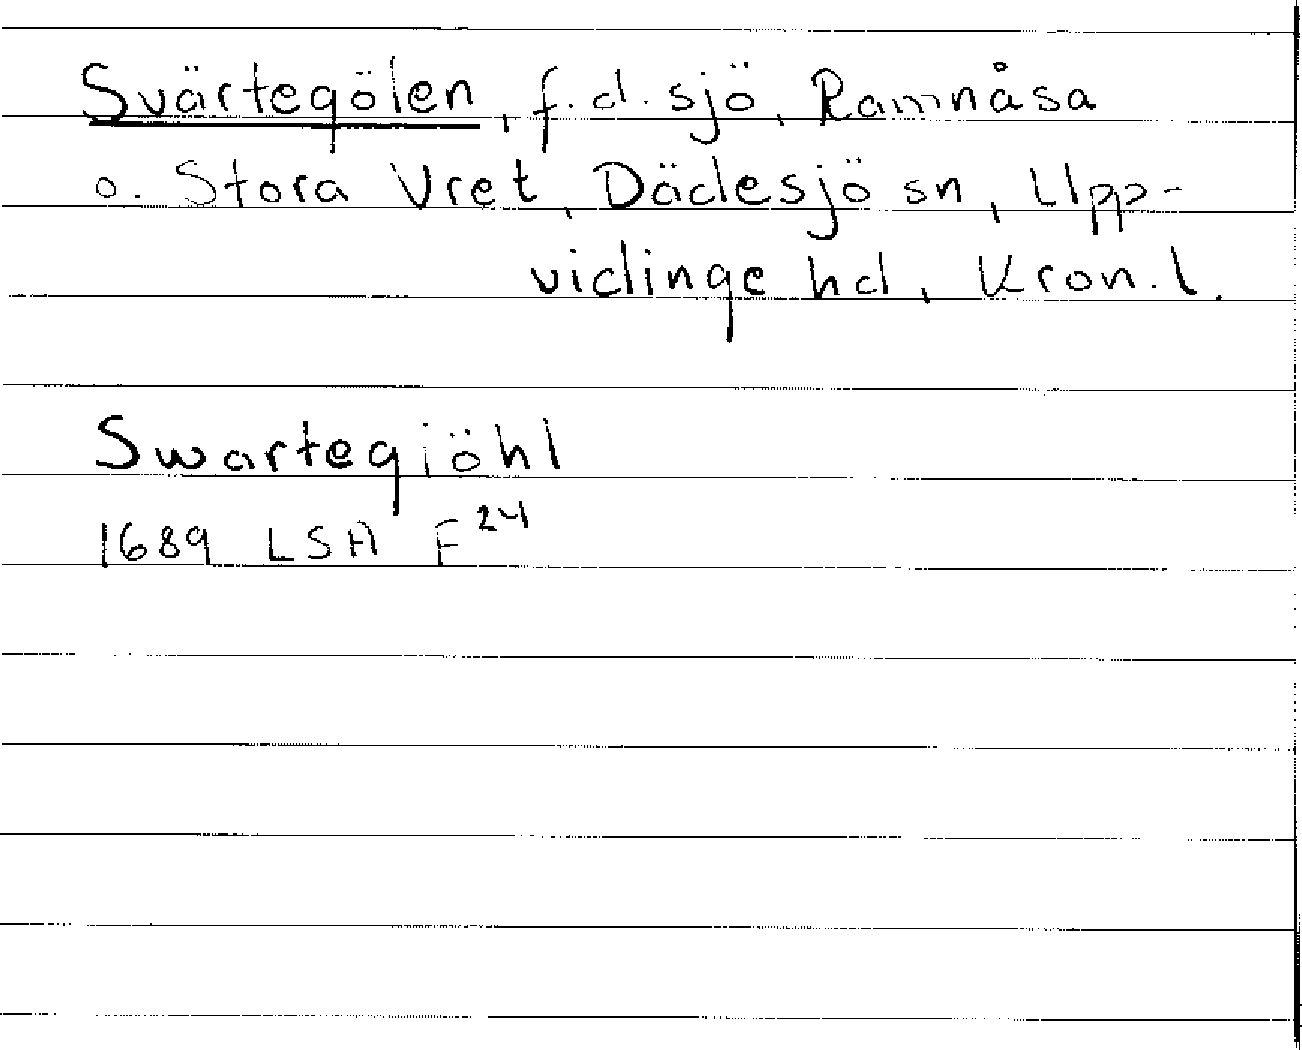 Svärtegölen, f.d. sjö, Ramnåsa
o. Stora Vret, Dädesjö sn, Upp-
vidinge hd, Kron. l.
Swartegiöhl
1689 LSA F24